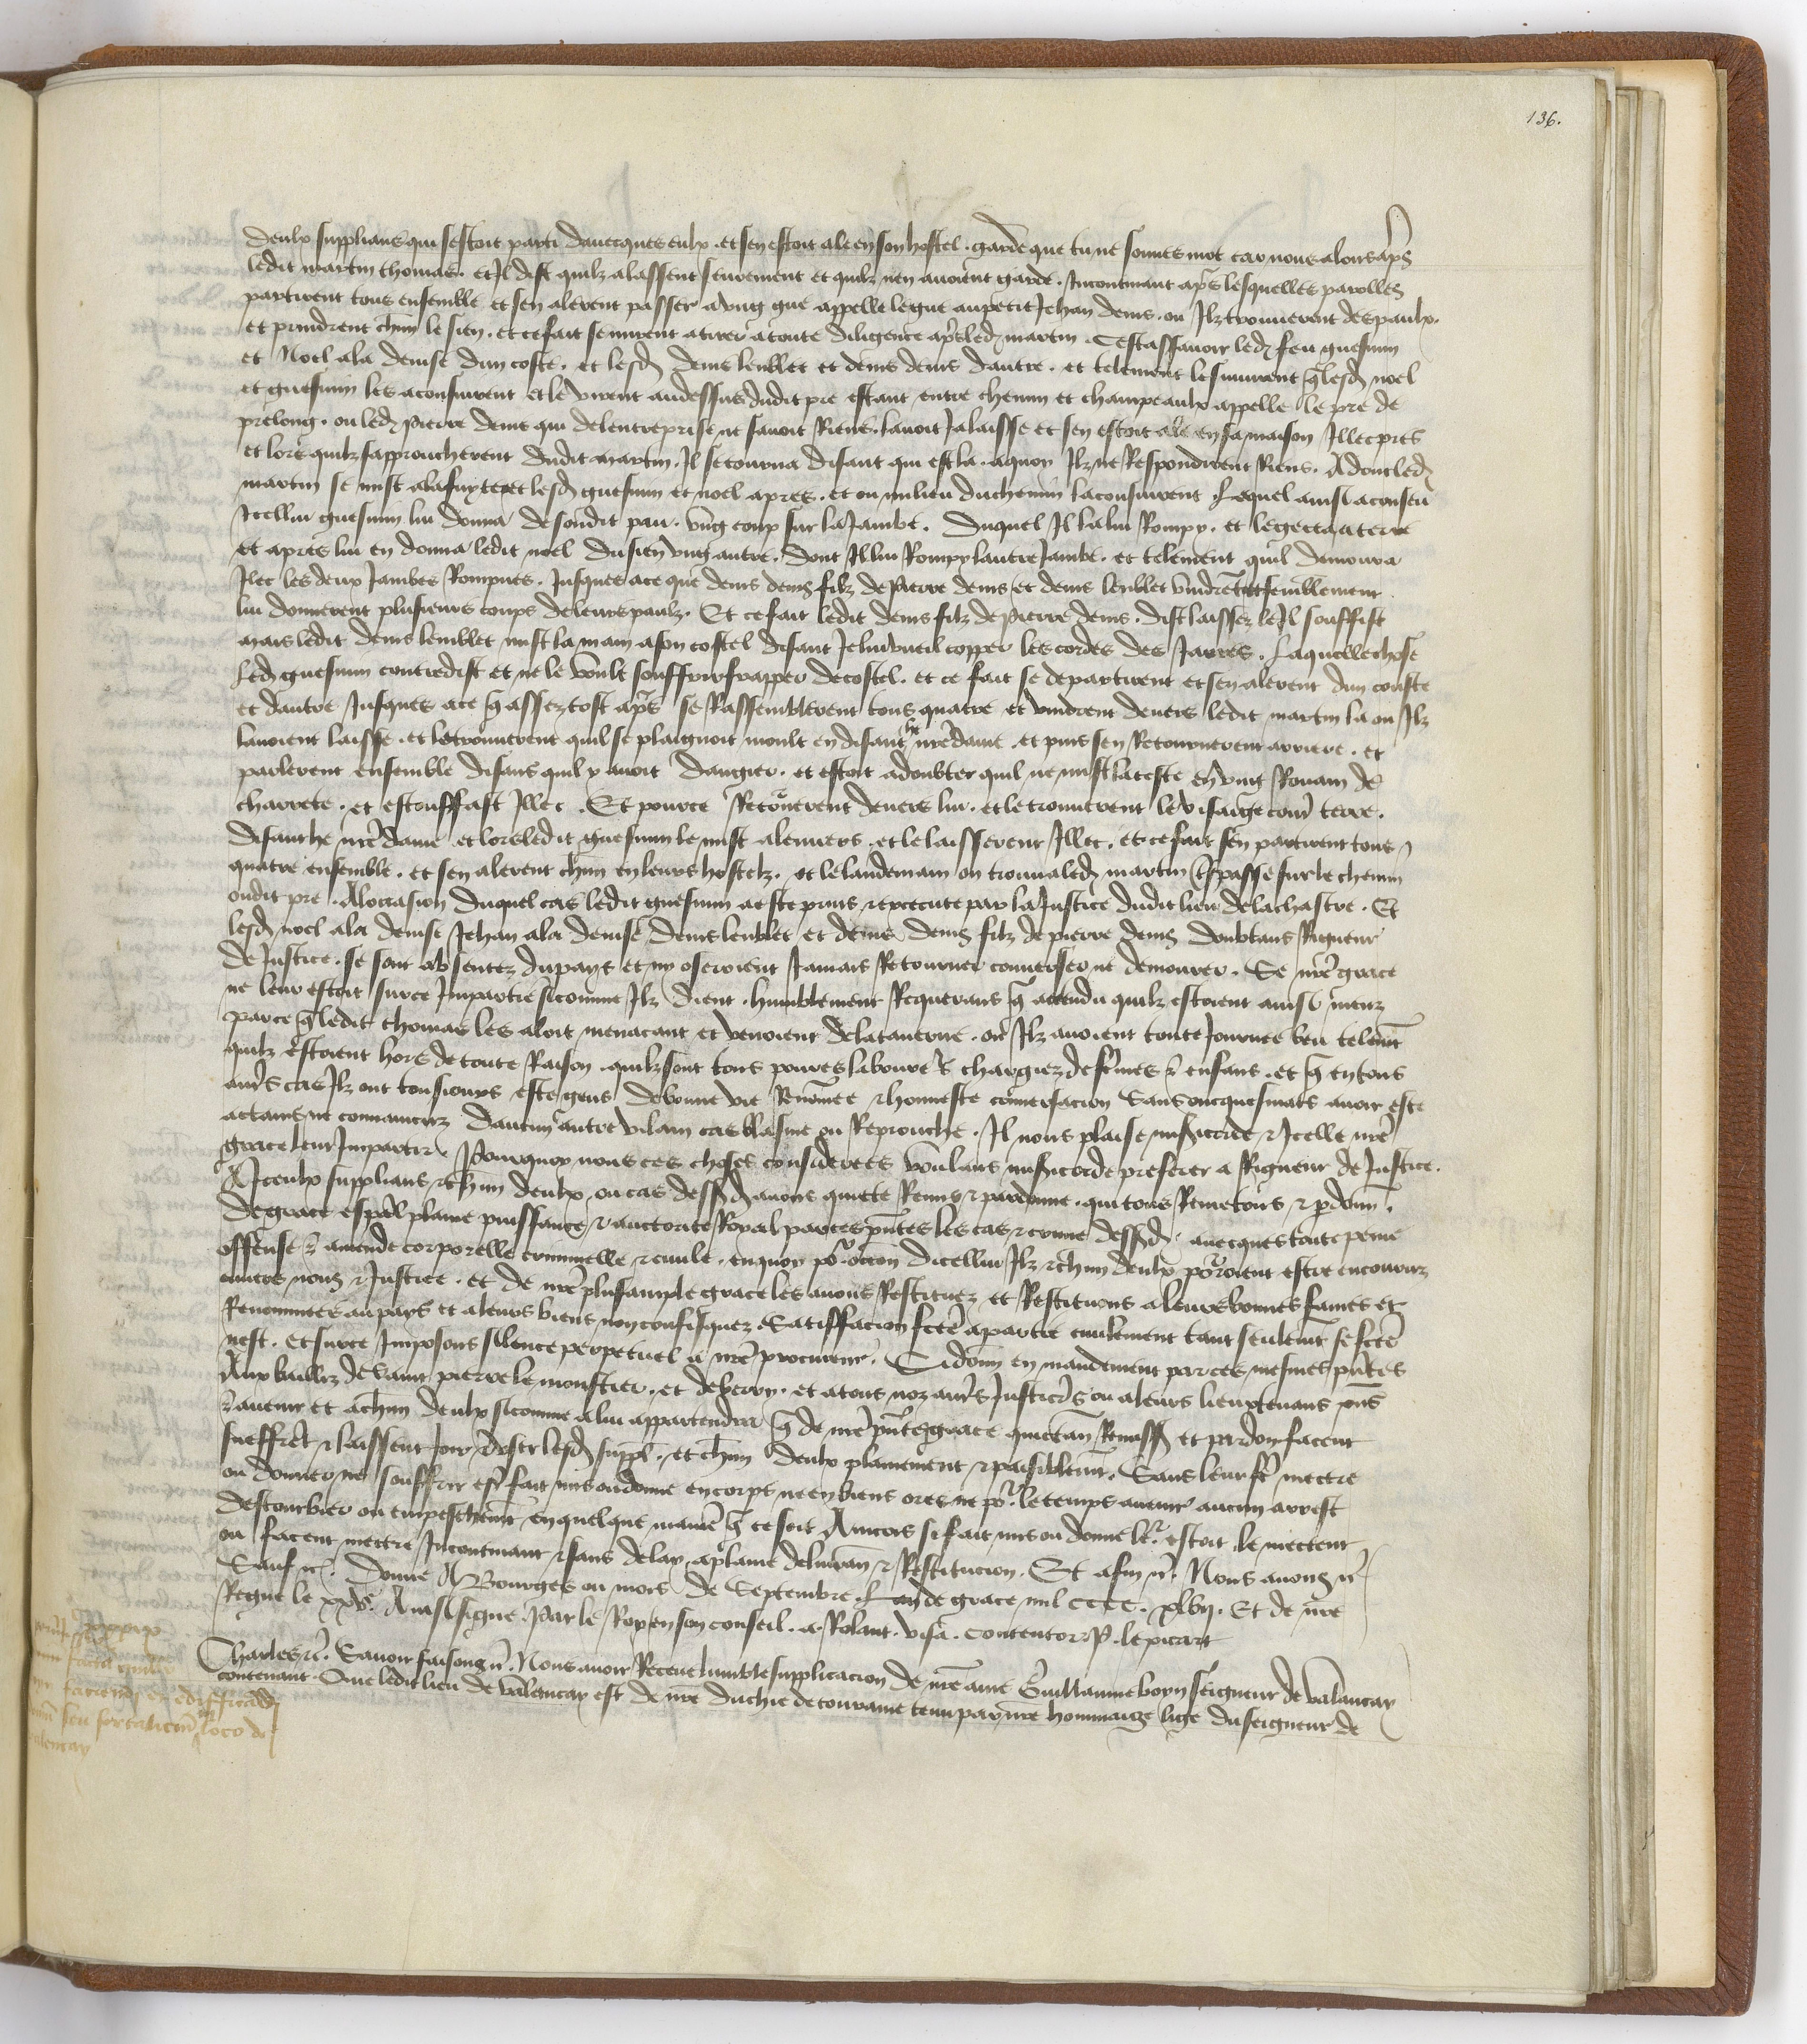 136.
deulx supplians qui sestoit parti dauecques eulx . et sen estoit ale en son hostel . garde que tu ne sonnes mot car nous alons apres
ledit martin thomas . et Il dist quilz alassent seurement et quilz nen auoient garde . Incontinant apres lesquelles parolles
partirent tous ensemble et sen alerent passer a vng gue appelle le gue au petit Jehan denis . ou Ilz trouuerent des paulx .
et prindrent chun le sien . et ce fait se mirent a tirer a toute diligence apres led martin . Cestassauoir led feu guesmin
et Noel ala denise dun coste . et lesd denis lenblet et denis denis dautre . et telement les suiuirent q lesd noel
et guesmin les aconsuirent et le virent audessus dudit pre estant entre chemin et champeaulx appelle le pre de
prelong . ou led pierre denis qui de lentreprise ne sauoit Riens . lauoit Ja laisse et sen estoit ale en sa maison Illec pres
et lors quilz sapproucherent dudit martin . Il se tourna disant qui est la . a quoy Ilz ne Respondirent Riens . Adonc led
martin se mist a la fuyte et lesd guesmin et noel apres . et ou milieu du chemin laconsuirent . Lequel ainsi aconseu
Icellui guesmin lui donna de sondit pau . vng coup sur la Jambe . Duquel Il la lui Rompy . et le gecta a terre
et apres lui en donna ledit noel du sien vng autre . dont Il lui Rompy lautre Jambe . et telement quil demoura
Ilec les deux Jambes Rompues . Jusques a ce que denis denis filz de pierre denis et denis lenblet vindrent ensemblement
lui donnerent plusieurs coups de leurs paulx . Et ce fait ledit denis filz de pierre denis . dist laissez le Il souffist
mais ledit denis lenblet mist la main a son costel disant Je lui vueil copper les cordes des Jarres . Laquelle chose
led guesmin contredist et ne le voult souffrir frapper de costel . et ce fait se departirent et sen alerent dun couste
et dautre Jusques a ce q assez tost apres se Rassemblerent tous quatre et vindrent deuers ledit martin la ou Ilz
lauoient laisse . et le trouuerent quil se plaignoit moult en disant he nre dame . et puis sen Retournerent arriere . et
parlerent ensemble disans quil y auoit dangier . et estoit a doubter quil ne mist la teste en vng Rouain de
charrete . et estouffast Illec . Et pource Retornerent deuers lui . et le trouuerent le visaige contre terre .
disant he nre dame . et lors ledit guesmin le mist a lenuers . et le laisserent Illec . et ce fait sen partirent tous
quatre ensemble . et sen alerent chun en leurs hostelz . et le landemain on trouua led martin trespasse sur le chemin
oudit pre . A loccasion duquel cas ledit guesmin a este prins et execute par la Justice dudit lieu de la chastre . Et
lesd noel ala denise Jehan ala denise denis lenblet et denis denis filz de pierre denis doubtans Rigueur
de Justice . se sont absentez du pays et ny oseroient Jamais Retourner conuerser ne demourer . Se nre grace
ne leur estoit sur ce Impartie sicomme Ilz dient . humblement Requerans q attendu quilz estoient ainsi meuz
parce q ledit thomas les aloit menacant et venoient de la tauerne . ou Ilz auoient toute Journee beu telemt
quilz estoient hors de toute Raison . quilz sont tous poures laboureurs chargiez de femes et enfans . et q en tous
aures cas Ilz ont tousiours este gens de bonne vie Renomee et honneste conuersacion Sans oncquesmais auoir este
actains ne conuaincuz daucun autre vilain cas blasme ou Reprouche . Il nous plaise misericorde et Icelle nre
grace leur Impartir . Pourquoy nous ces choses considerees voulans misericorde preferer a Rigueur de Justice .
A Iceulx supplians et chun deulx ou cas dessusd auons quicte Remis et pardonne . quictons Remetons et pdonn .
De grace espal plaine puissance et auctorite Royal par ces pntes les cas et crime dessusd auecques toute peine
offense et amende corporelle criminelle et ciuile . en quoy pour occon dicellui Ilz et chun deulx pourroient estre encouruz
enuers nous et Justice . et de nre plus ample grace les auons Restituez et Restituons a leurs bonnes fames et
Renommees au pays et a leurs biens non confisquez . Satisfacion fcte a partie ciuilement tant seulemt se fcte
nest . et sur ce Imposons silence perpetuel a nre procureur . Si donn en mandement par ces mesmes pntes
Aux bailliz de saint pierre le moustier . et de berry . et a tous noz aures Justiciers ou a leurs lieuxtenans pns
et auenir et a chun deulx sicomme a lui appartendra q de nre pnte grace quictan Remission et pardon facent
sueffrent et laissent Joir et vser lesd suppl . et chun deulx plainement et paisiblemt . Sans leur fere mectre
ou donner ne souffrir estre fait mis ou donne en corps ne en biens ores ne pour le temps auenir aucun arrest
destourbier ou empeschemt en quelque maniere q ce soit Aincois se fait mis ou donne leur estoit le mectent
ou facent mectre Incontinant et sans delay a plaine deliuran et Restitucion . Et afin etc . Nous auons etc
Sauf etc . Donne A Bourges ou mois de Septembre . Lan de grace mil cccc . xlvij . Et de nre
Regne le xxve . Ainsi signe . Par le Roy en son conseil . a . Rolant . visa . contentor . P . le picart
Charles etc . Sauoir faisons etc . Nous auoir Receue lumble supplicacion de nre ame Guillaume bory seigneur de valancay
contenant . Que ledit lieu de valancay est de nre duchie de touraine tenu par nre hommaige lige du seigneur de
faciendi et edifficandi
seu fortalicium loco de
valencay